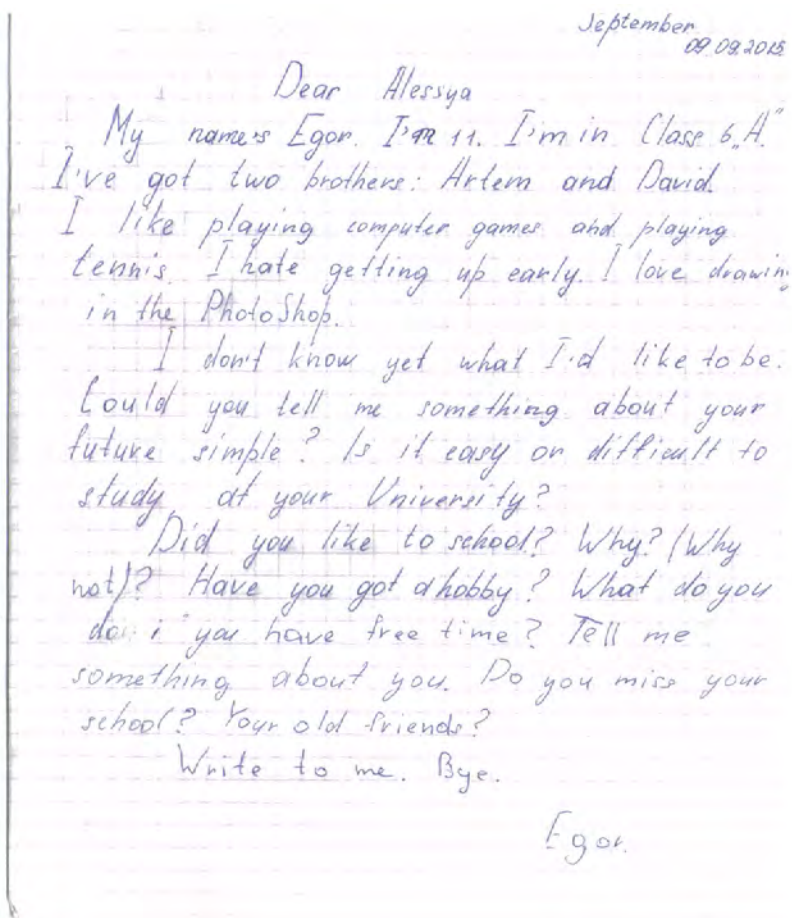 September
09.09.2015
Dear Alessya
My name's Egor. I'm 11. I'm in Class 6„A“.
I've got two brothers: Artem and David.
I like playing computer games and playing
tennis. I hate getting up early. I love drawing
in the PhotoShop.
I don't know yet what I'd like to be.
Could you tell me something about your
future simple? Is it easy or difficult to
study at your University?
Did you like to school? Why? (Why
not)? Have you got a hobby? What do you
do you have free time? Tell me
something about you. Do you miss your
school? Your old friends?
Write to me. Bye.
Egor.